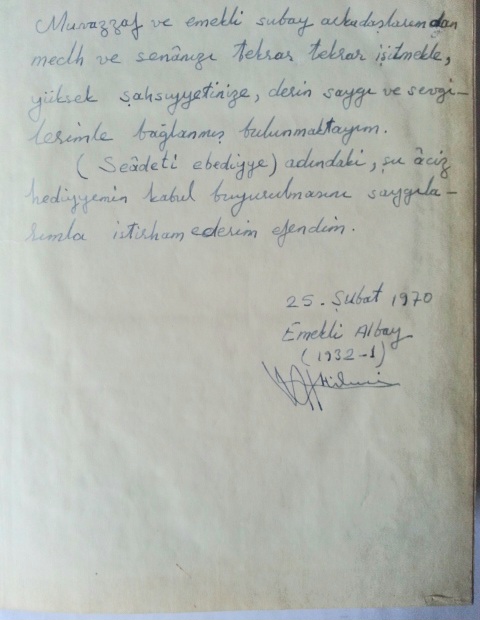 Muvazzaf ve emekli subay arkadaşlarımdan
medh ve senânızı tekrar tekrar işitmekle,
yüksek şahsıyyetinize, derin saygı ve sevgi-
lerimle bağlanmış bulunmaktayım.
( Seâdeti ebediyye) adındaki, şu âciz
hediyyemin kabul buyurulmasını saygıla-
rımla istirham ederim efendim.
25. Şubat 1970
Emekli Albay
(1932-1)
Hilmi